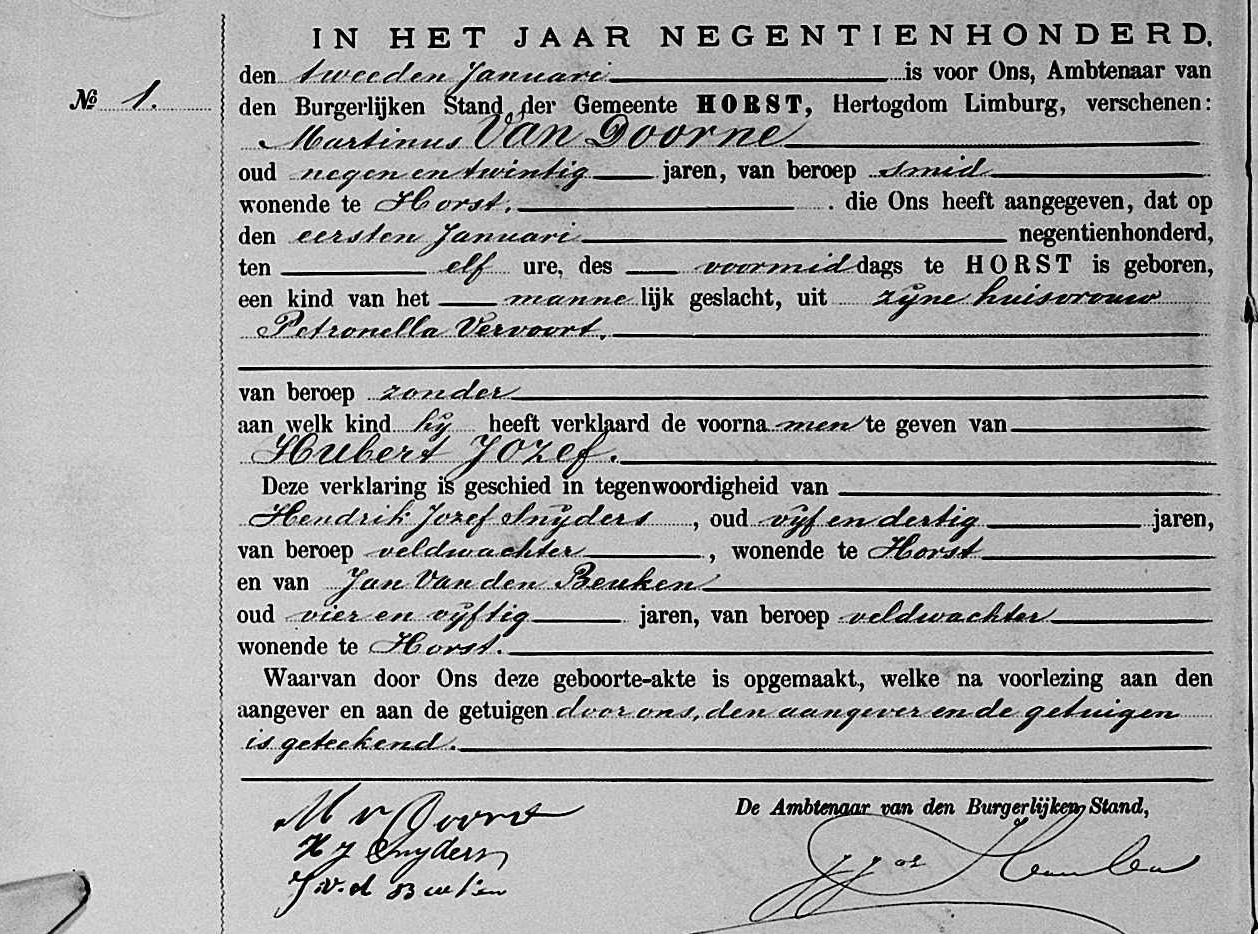 IN HET JAAR NEGENTIENHONDERD,
den tweeden Januari is voor Ons, Ambtenaar van
No 1.
den Burgerlijken Stand der Gemeente HORST, Hertogdom Limburg, verschenen:
Martinus Van Doorne
oud negen en twintig jaren, van beroep smid
wonende te Horst. die Ons heeft aangegeven, dat op
den eersten Januari negentienhonderd,
ten elf ure, des voormiddags te HORST is geboren,
een kind van het mannelijk geslacht, uit zijne huisvrouw
Petronella Vervoort.
van beroep zonder
aan welk kind hij heeft verklaard de voornamen te geven van
Hubert Jozef.
Deze verklaring is geschied in tegenwoordigheid van
Hendrik Jozef Snijders, oud vijf en dertig jaren,
van beroep veldwachter, wonende te Horst
en van Jan Van den Beuken
oud vier en vijftig jaren, van beroep veldwachter
wonende te Horst.
Waarvan door Ons deze geboorte-akte is opgemaakt, welke na voorlezing aan den
aangever en aan de getuigen door ons, den aangever en de getuigen
is geteekend.
De Ambtenaar van den Burgerlijken Stand,
M v Doorne
H J Snyders
J v. d Beuken